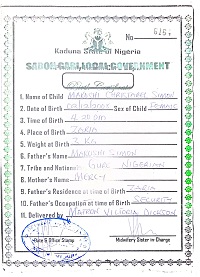 No
Kaduna State of Nigeria
SABON GARI LOCAL GOVERNMENT
Birth Certificate
1. Name of Child SIMON
2. Date of Birth Sex of Child FEMALE
3. Time of Birth 4.20 pm
4. Place of Birth ZARIA
5. Weight at Birth 3 KG
6. Father's Name SIMON
7. Tribe and National NIGERIAN
8. Mother's Name MERCY
9. Father's Residence at time of Birth ZARIA
10. Father's Occupation at time of Birth SECURITY
11. Delivered by MATRON VICTORIA DICKSON
Date & Office Stamp
Midwifery Sister in Charge